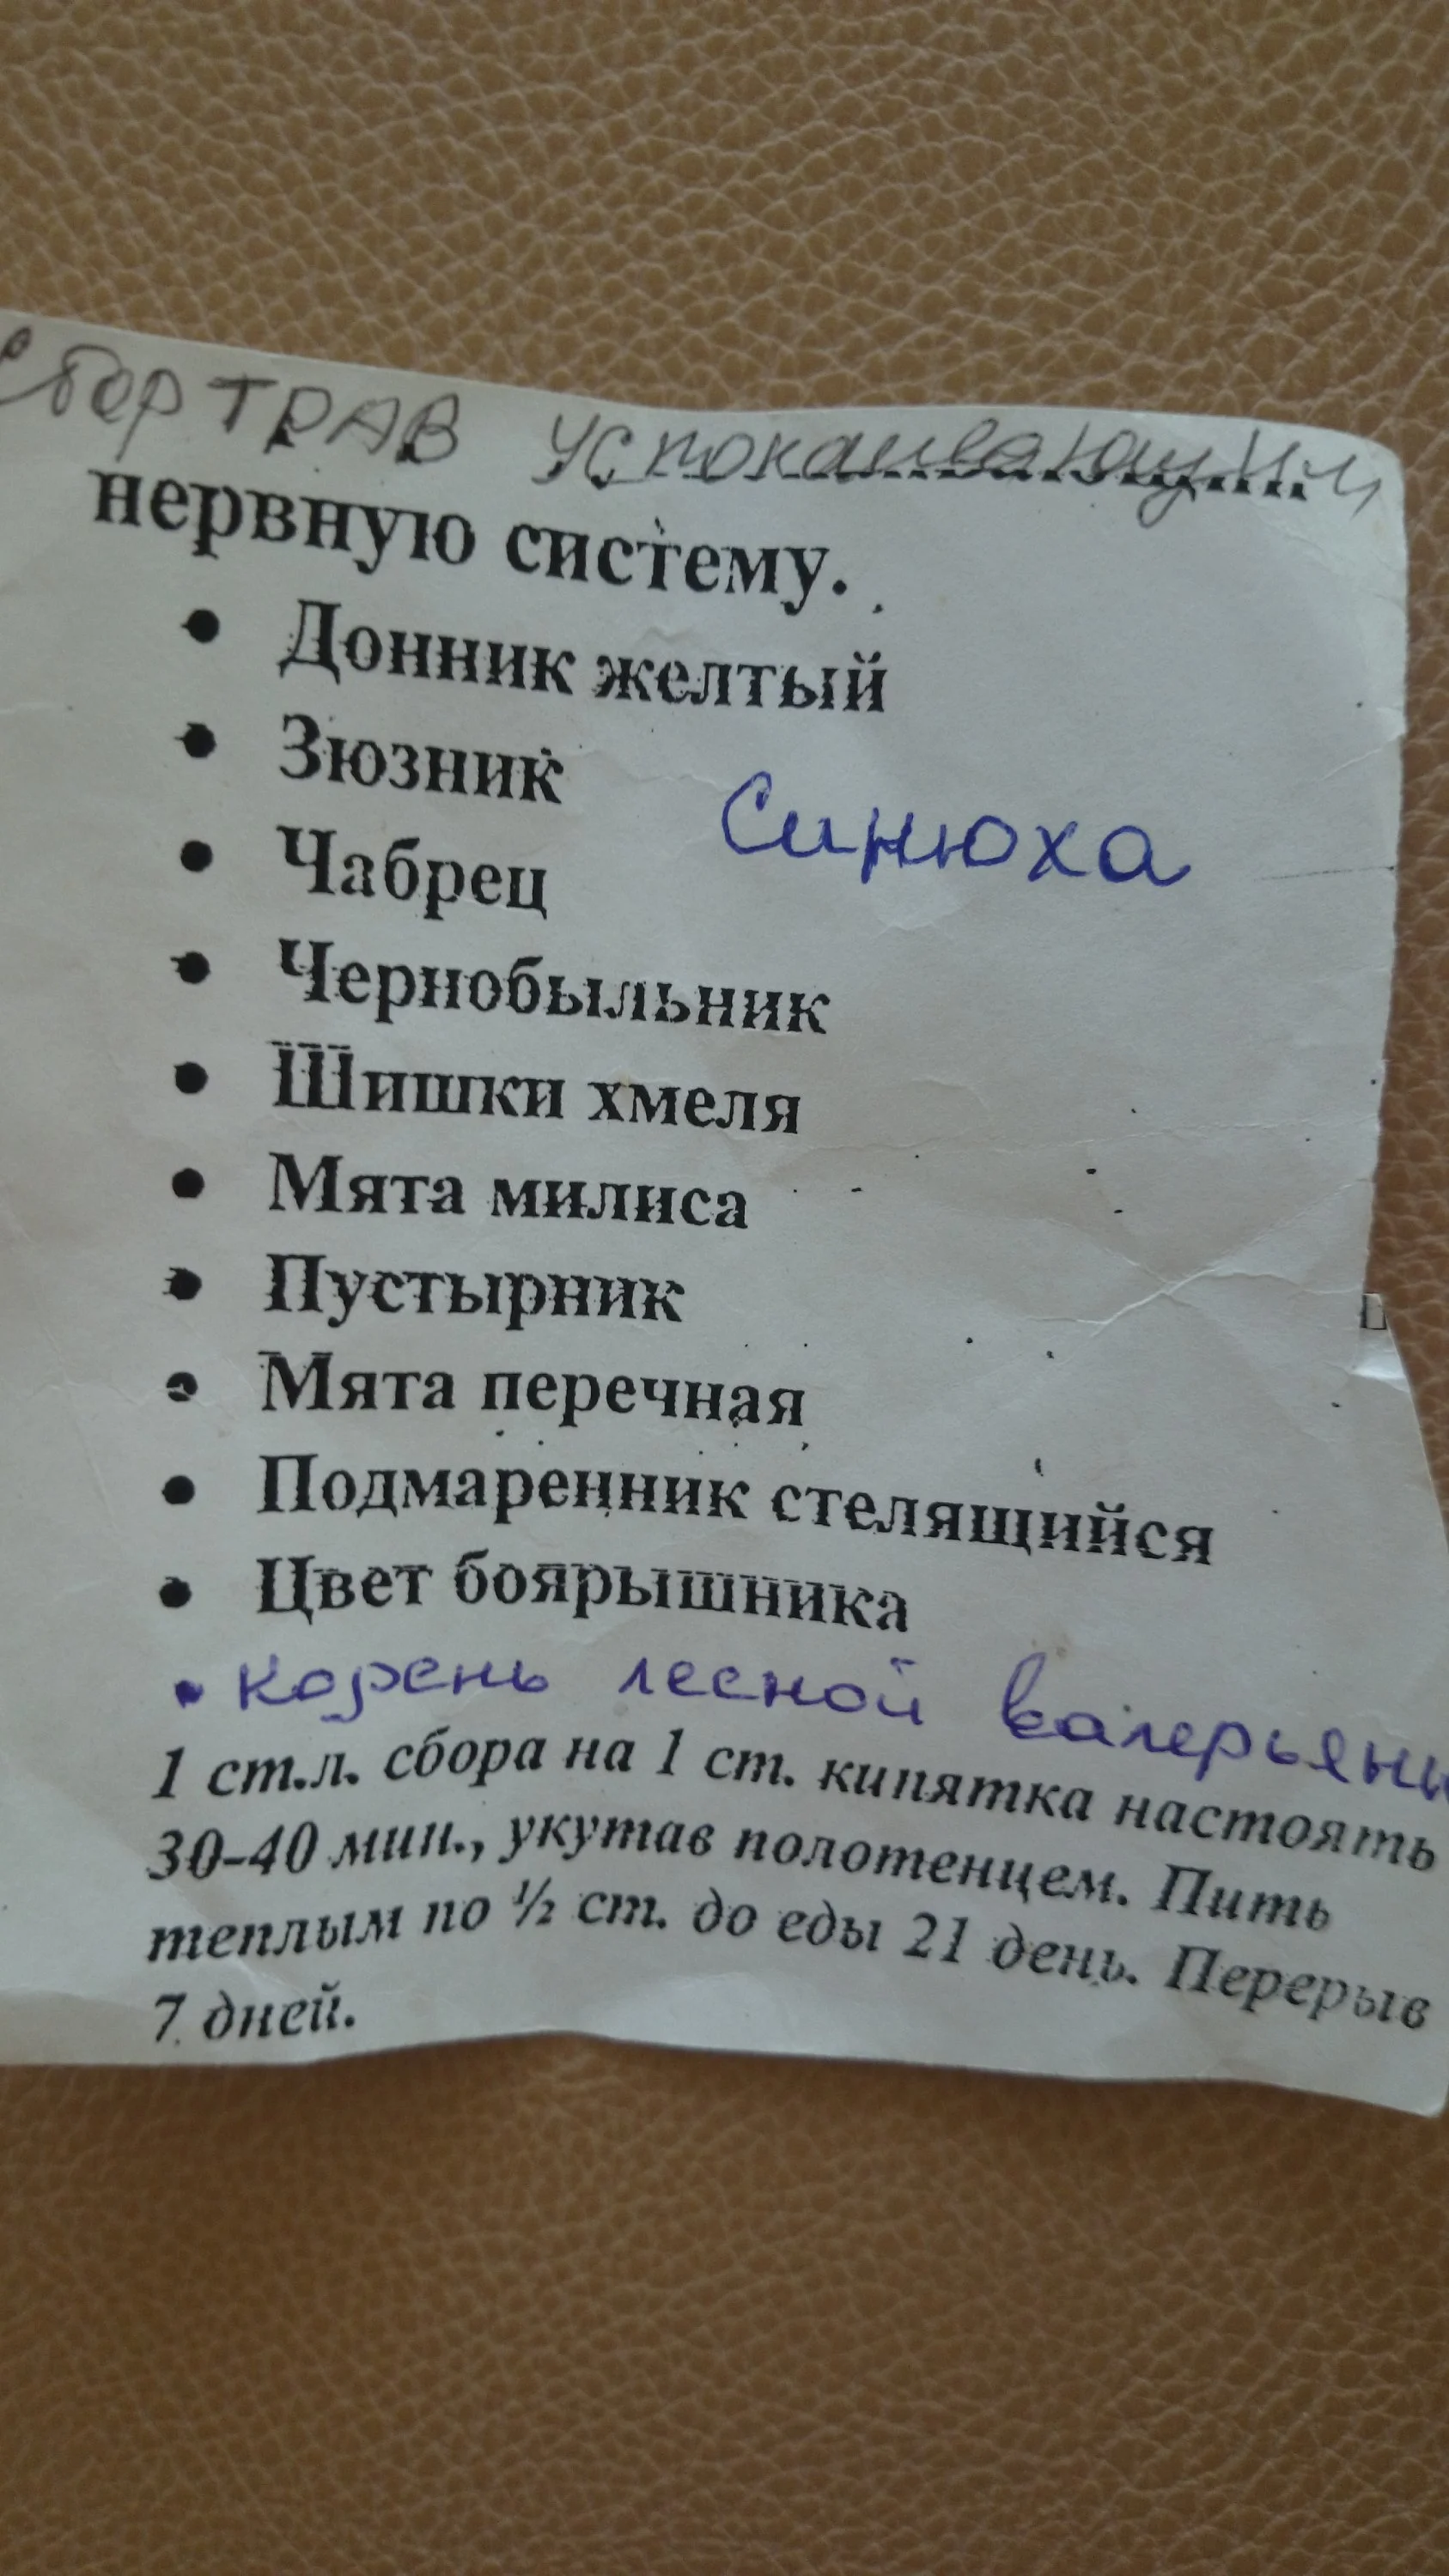 Сбор ТРАВ успокаивающий
нервную систему.
• Донник желтый
• Зюзник
Синюха
• Чабрец
• Чернобыльник
• Шишки хмеля
• Мята милиса
• Пустырник
• Мята перечная
• Подмаренник стелящийся
• Цвет боярышника
• корень лесной валерьяны
1 ст.л. сбора на 1 ст. кипятка настоять
30-40 мин., укутав полотенцем. Пить
теплым по ½ ст. до еды 21 день. Перерыв
7 дней.